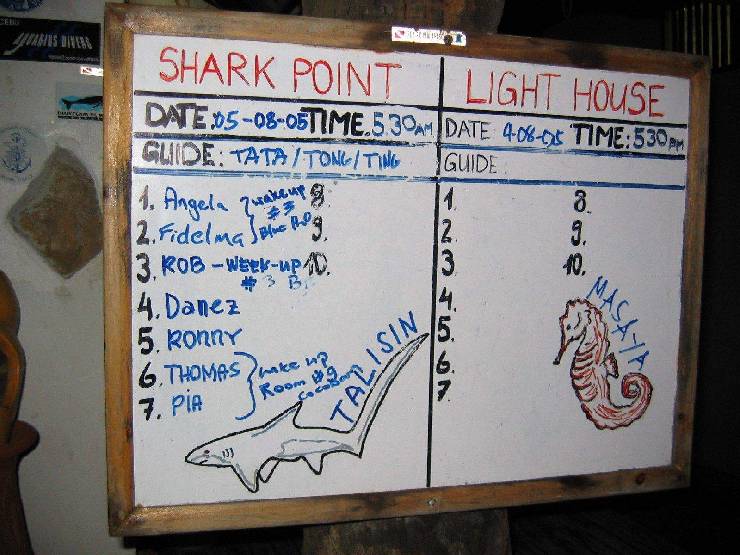 CEBU
AQUARIUS DIVERS
SHARK POINT
DATE: 05-08-05 TIME: 5.30AM
GUIDE: TATA/TONG/TING
1. Angela wake up
#3
2. Fidelma Blue
3. ROB - WEEK-UP
# 3 B
4. Danez
5. RONNY
6. THOMAS wake up
Room #9
7. PIA
8.
9.
10.
TALISIN
LIGHT HOUSE
DATE 4-08-05 TIME: 530 PM
GUIDE
1.
2.
3.
4.
5.
6.
7.
8.
9.
10.
MASAYA